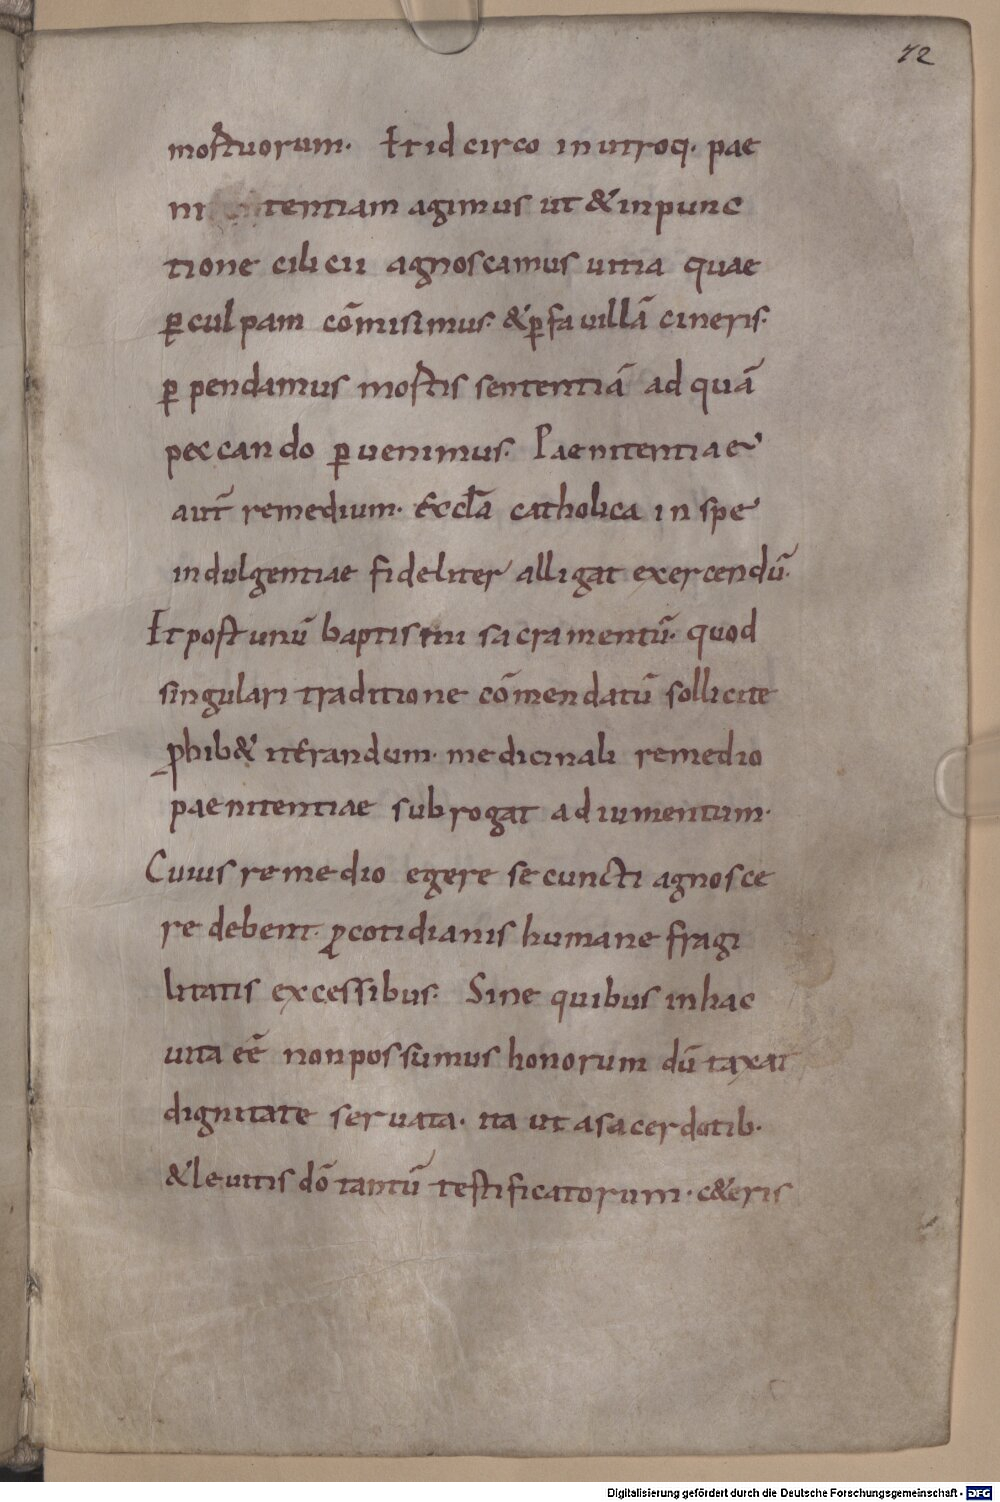 72
mortuorum. Et id circo in utroq. pae
ni tentiam agimus ut & inpunc
tione cilicii agnoscamus uitia quae
ꝑ culpam cōmisimus. & ꝑ fauillā cineris.
ꝑ pendamus mortis sententiā ad quā
peccando ꝑuenimus. Paenitentiae
aut̄ remedium. Eccl̄a catholica in spe
indulgentiae fideliter alligat exercendū.
Et post unū baptismi sacramentū. quod
singulari traditione cōmendatū sollicite
ꝓhib& iterandum. medicinali remedio
paenitentiae subrogat adiumentum.
Cuius remedio egere se cuncti agnosce
re debent. ꝓ cotidianis humane fragi
litatis excessibus. Sine quibus in hac
uita eē non possumus honorum dū taxat
dignitate seruata. ita ut a sacerdotib.
& leuitis dō tantū testificatorum. c&eris
Digitalisierung gefördert durch die Deutsche Forschungsgemeinschaft - DFG